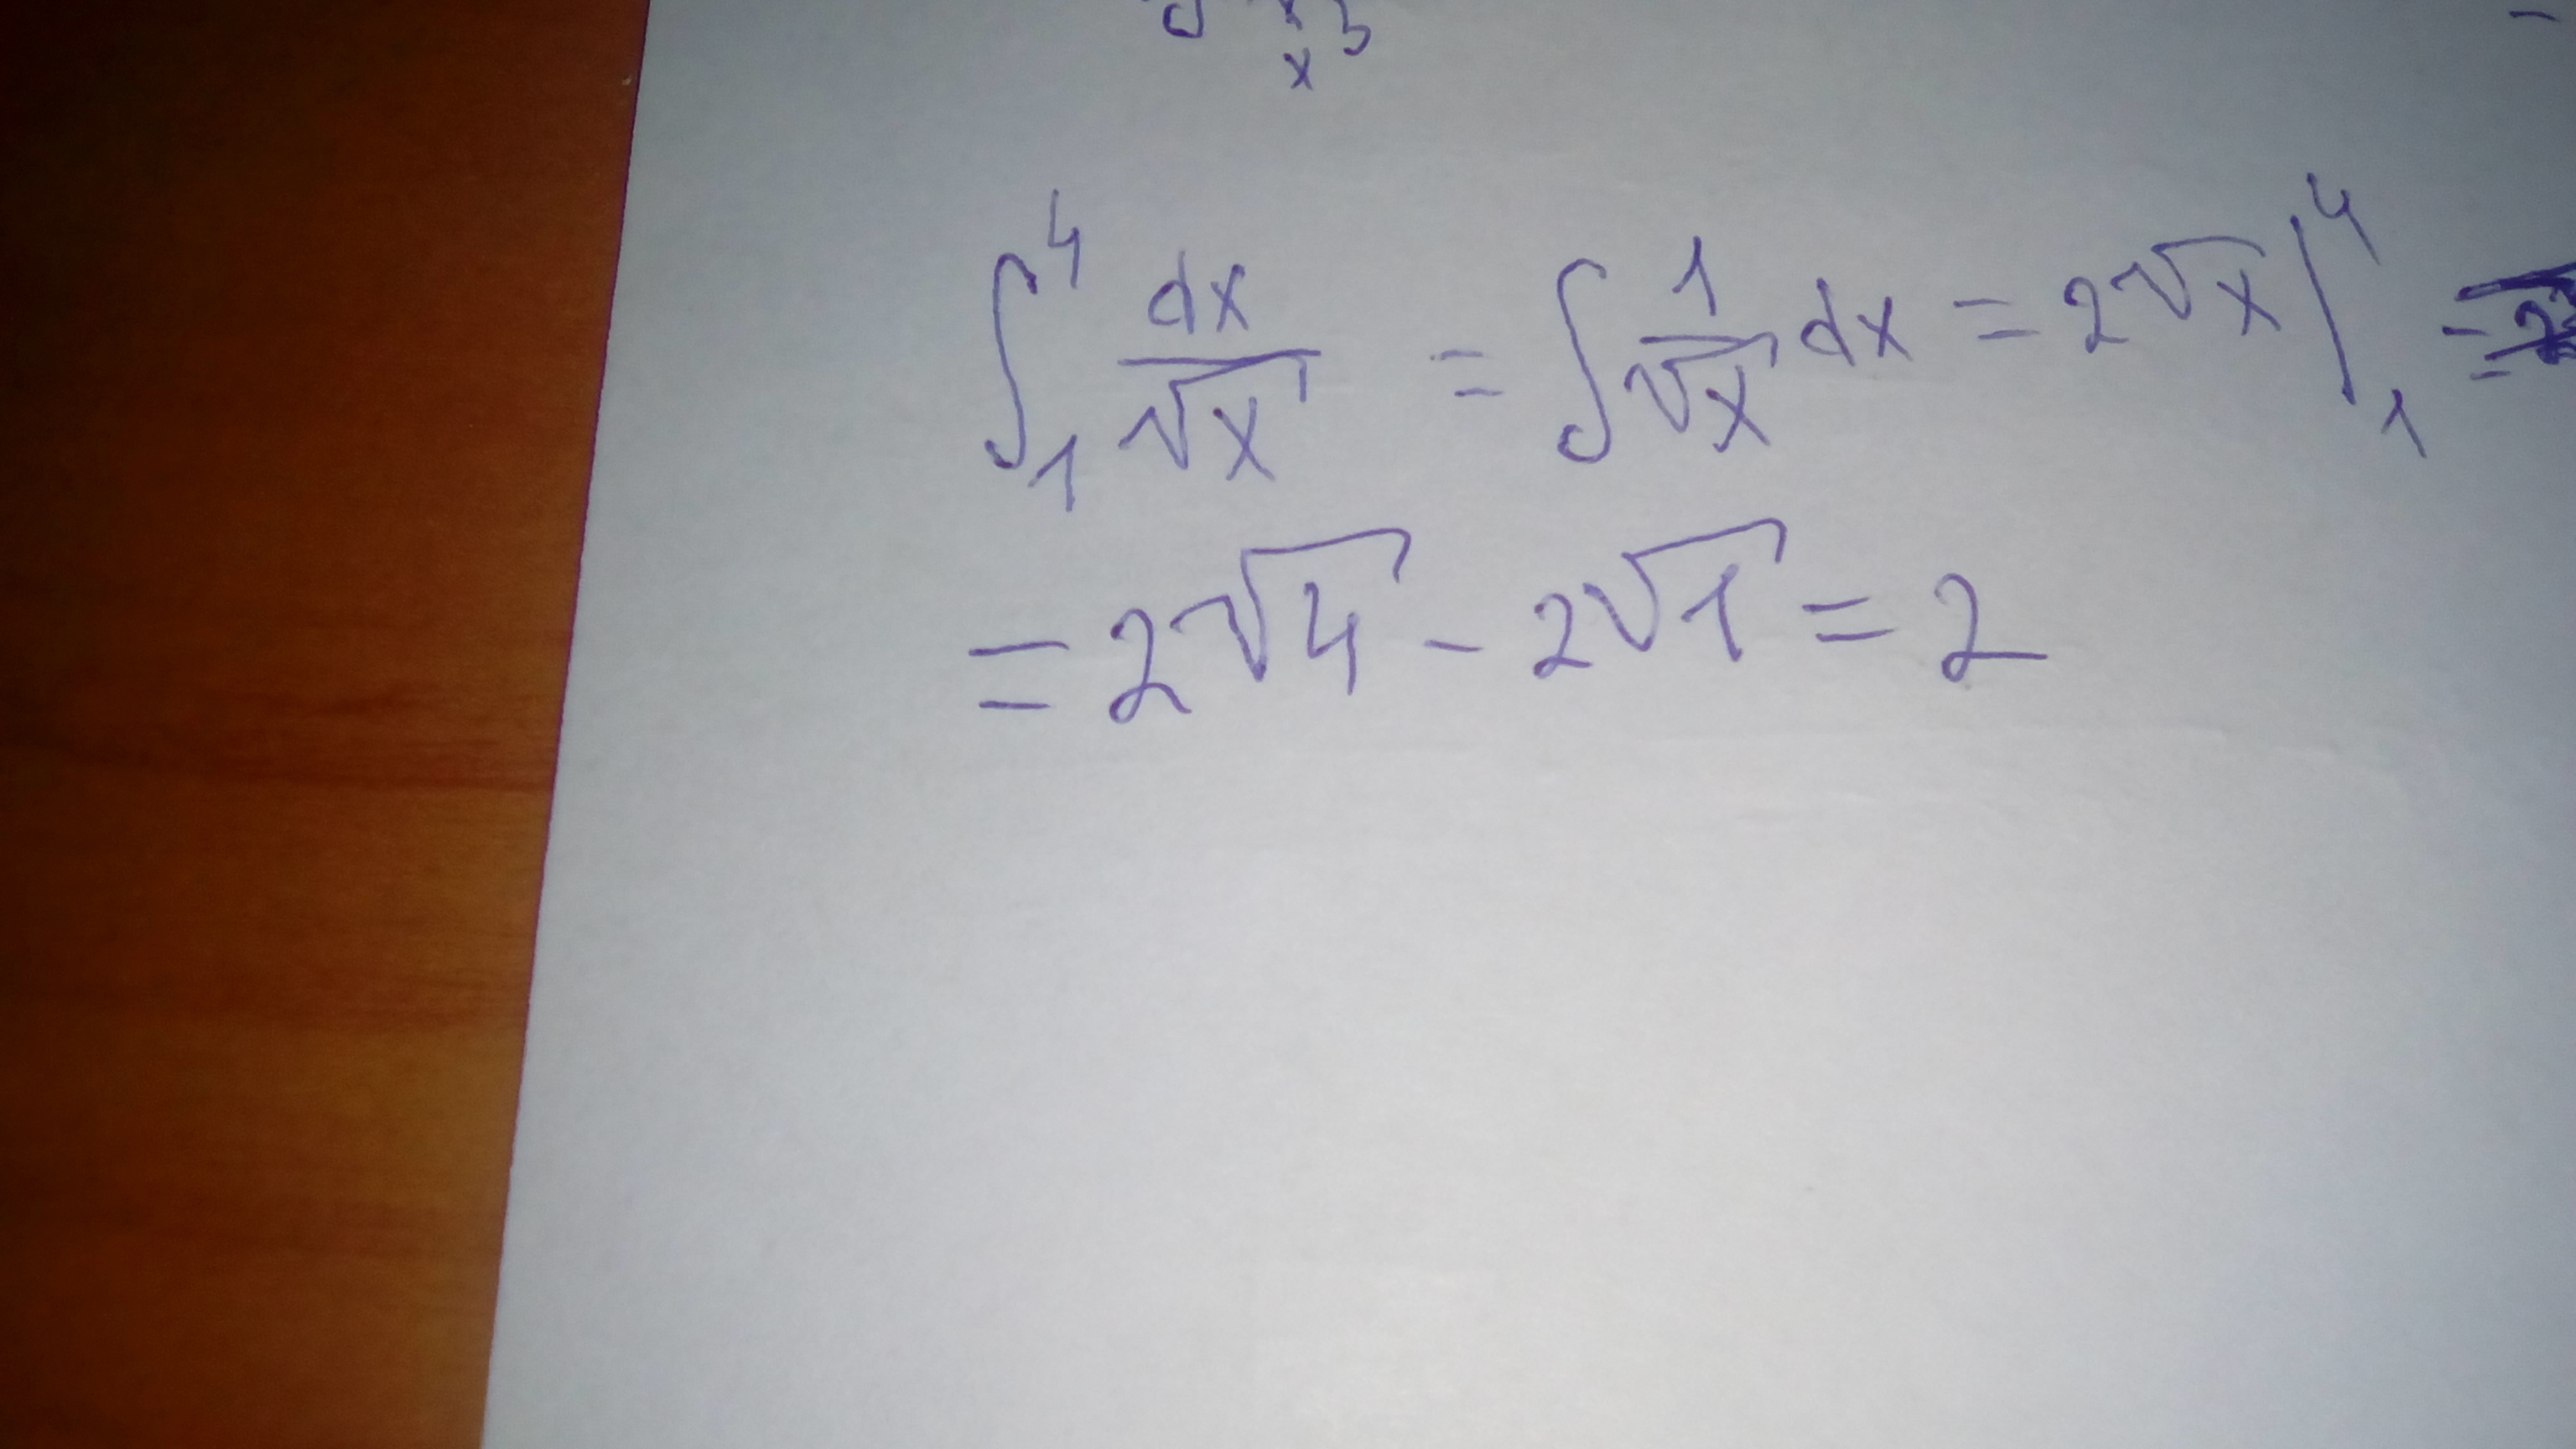 x 3
x
∫₁⁴ dx/√x = ∫ 1/√x dx = 2√x |₁⁴ =
= 2√4 - 2√1 = 2